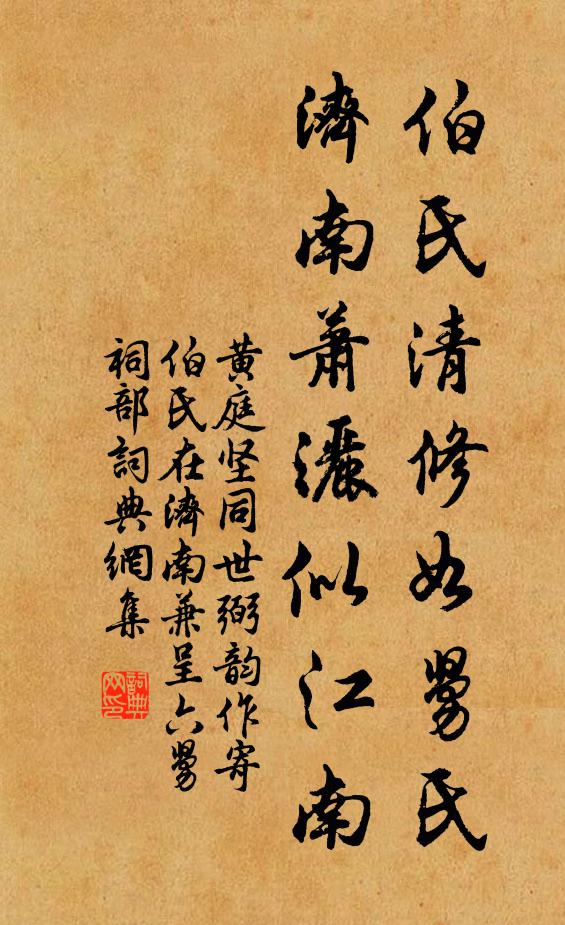 伯氏清修如舅氏
濟南蕭灑似江南
黄庭坚同世弼韵作寄
伯氏在濟南兼呈六舅
祠部詞典網集
詞典网印